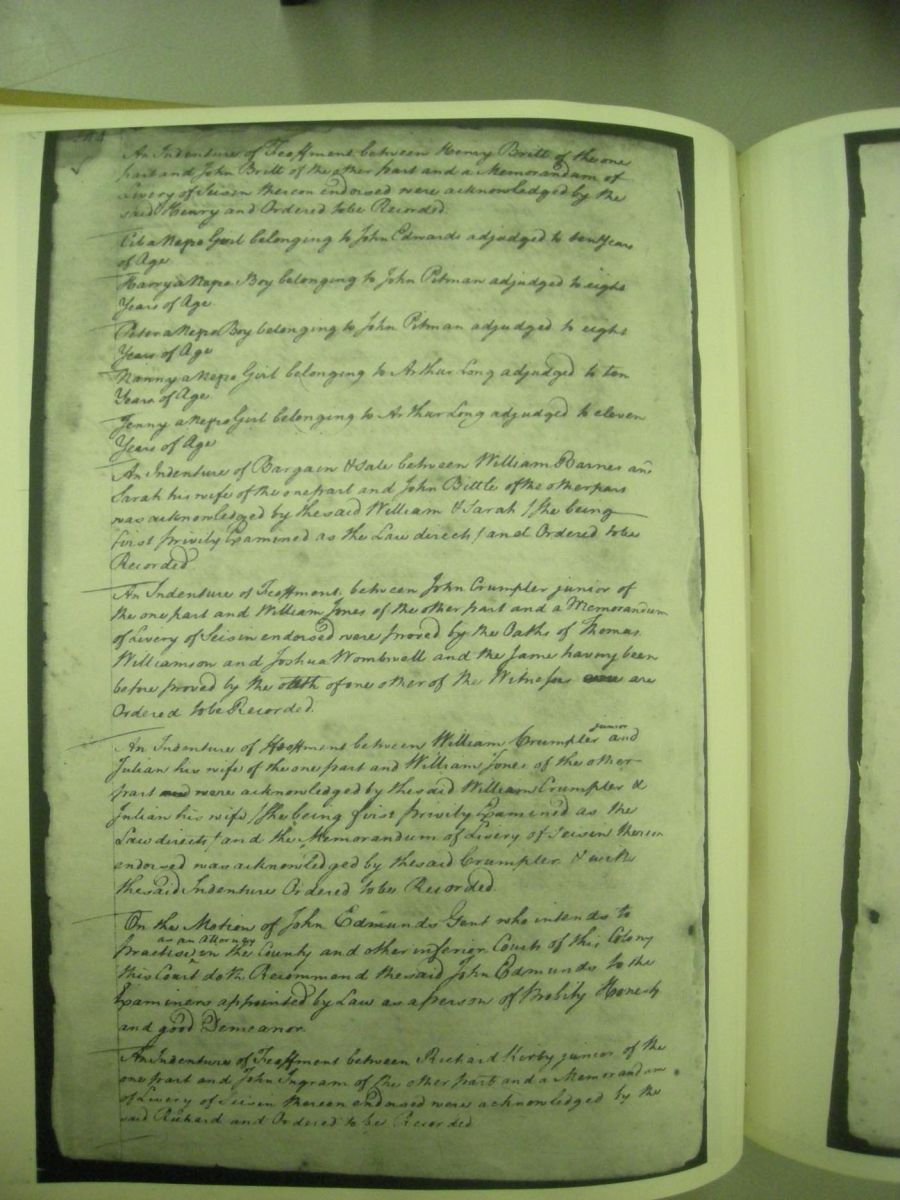 An Indenture of Feoffment between Henry Britt of the one
part and John Britt of the other part and a Memorandum of
Livery of Seisin thereon endorsed were acknowledged by the
said Henry and Ordered to be Recorded
a Negro Girl belonging to John Edwards adjudged to ten Years
of Age
Harry a Negro Boy belonging to John Pitman adjudged to eight
Years of Age
Peter a Negro Boy belonging to John Pitman adjudged to eight
Years of Age
Nanny a Negro Girl belonging to Arthur Long adjudged to ten
Years of Age
Jenny a Negro Girl belonging to Arthur Long adjudged to eleven
Years of Age
An Indenture of Bargain & Sale between William Barnes and
Sarah his wife of the one part and John Bittle of the other part
was acknowledged by the said William & Sarah /She being
first privily Examined as the Law directs/ and Ordered to be
Recorded
An Indenture of Feoffment, between John Crumpler junior of
the one part and William Jones of the other part and a Memorandum
of Livery of Seisin endorsed were proved by the Oaths of Thomas
Williamson and Joshua Wombwell and the same having been
before proved by the oath of one other of the Witnesses are
Ordered to be Recorded.
An Indenture of Feoffment between William Crumpler junior and
Julian his wife of the one part and William Jones of the other
part and were acknowledged by the said William Crumpler &
Julian his wife /She being first privily Examined as the
Law directs/ and the Memorandum of Livery of Seisin thereon
endorsed was acknowledged by the said Crumpler & with
the said Indenture Ordered to be Recorded.
On the Motion of John Edmunds Gent who intends to
Practise as an Attorney in the County and other inferior Courts of this Colony
this Court doth Recommend the said John Edmunds to the
Examiners appointed by Law as a person of Probity Honesty
and good Demeanor.
An Indenture of Feoffment between Richard Kirby junior of the
one part and John Ingram of the other part and a Memorandum
of Livery of Seisin thereon endorsed were acknowledged by the
said Richard and Ordered to be Recorded